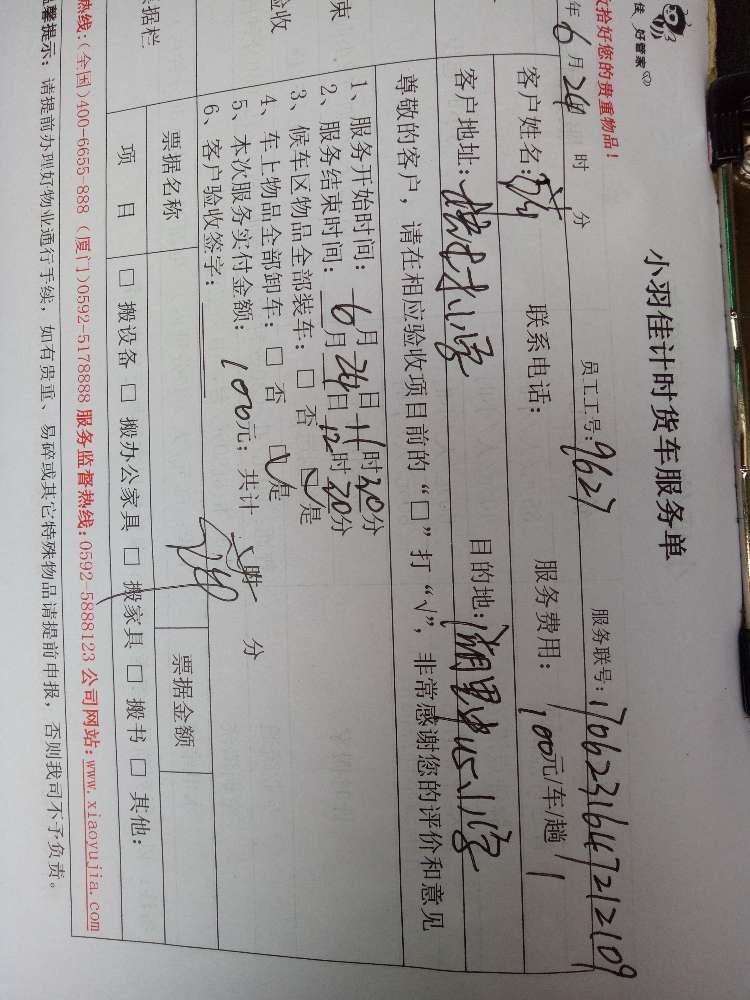 佳 好管家
小羽佳计时货车服务单
收拾好您的贵重物品!
年6月24 时 分
员工工号:9627
服务联号:1706231647212109
客户姓名:
联系电话:
服务费用: 100元/车/趟
客户地址: 小学
目的地:湖里中心小学
尊敬的客户,请在相应验收项目前的“□”打“√”,非常感谢您的评价和意见
1、服务开始时间: 6月24日11时30分
2、服务结束时间: 月 日12时20分
3、候车区物品全部装车:□ 否 ☑是
4、车上物品全部卸车:□ 否 ☑是
5、本次服务实付金额: 100元;共计 时 分
6、客户验收签字:
束
验收
票据栏
票据名称
票据金额
项 目
□ 搬设备 □ 搬办公家具 □ 搬家具 □ 搬书 □ 其他:
热线:(全国)400-6655-888 (厦门)0592-5178888 服务监督热线:0592-5888123 公司网站:www.xiaoyujia.com
温馨提示:请提前办理好物业通行手续,如有贵重、易碎或其它特殊物品请提前申报,否则我司不予负责。